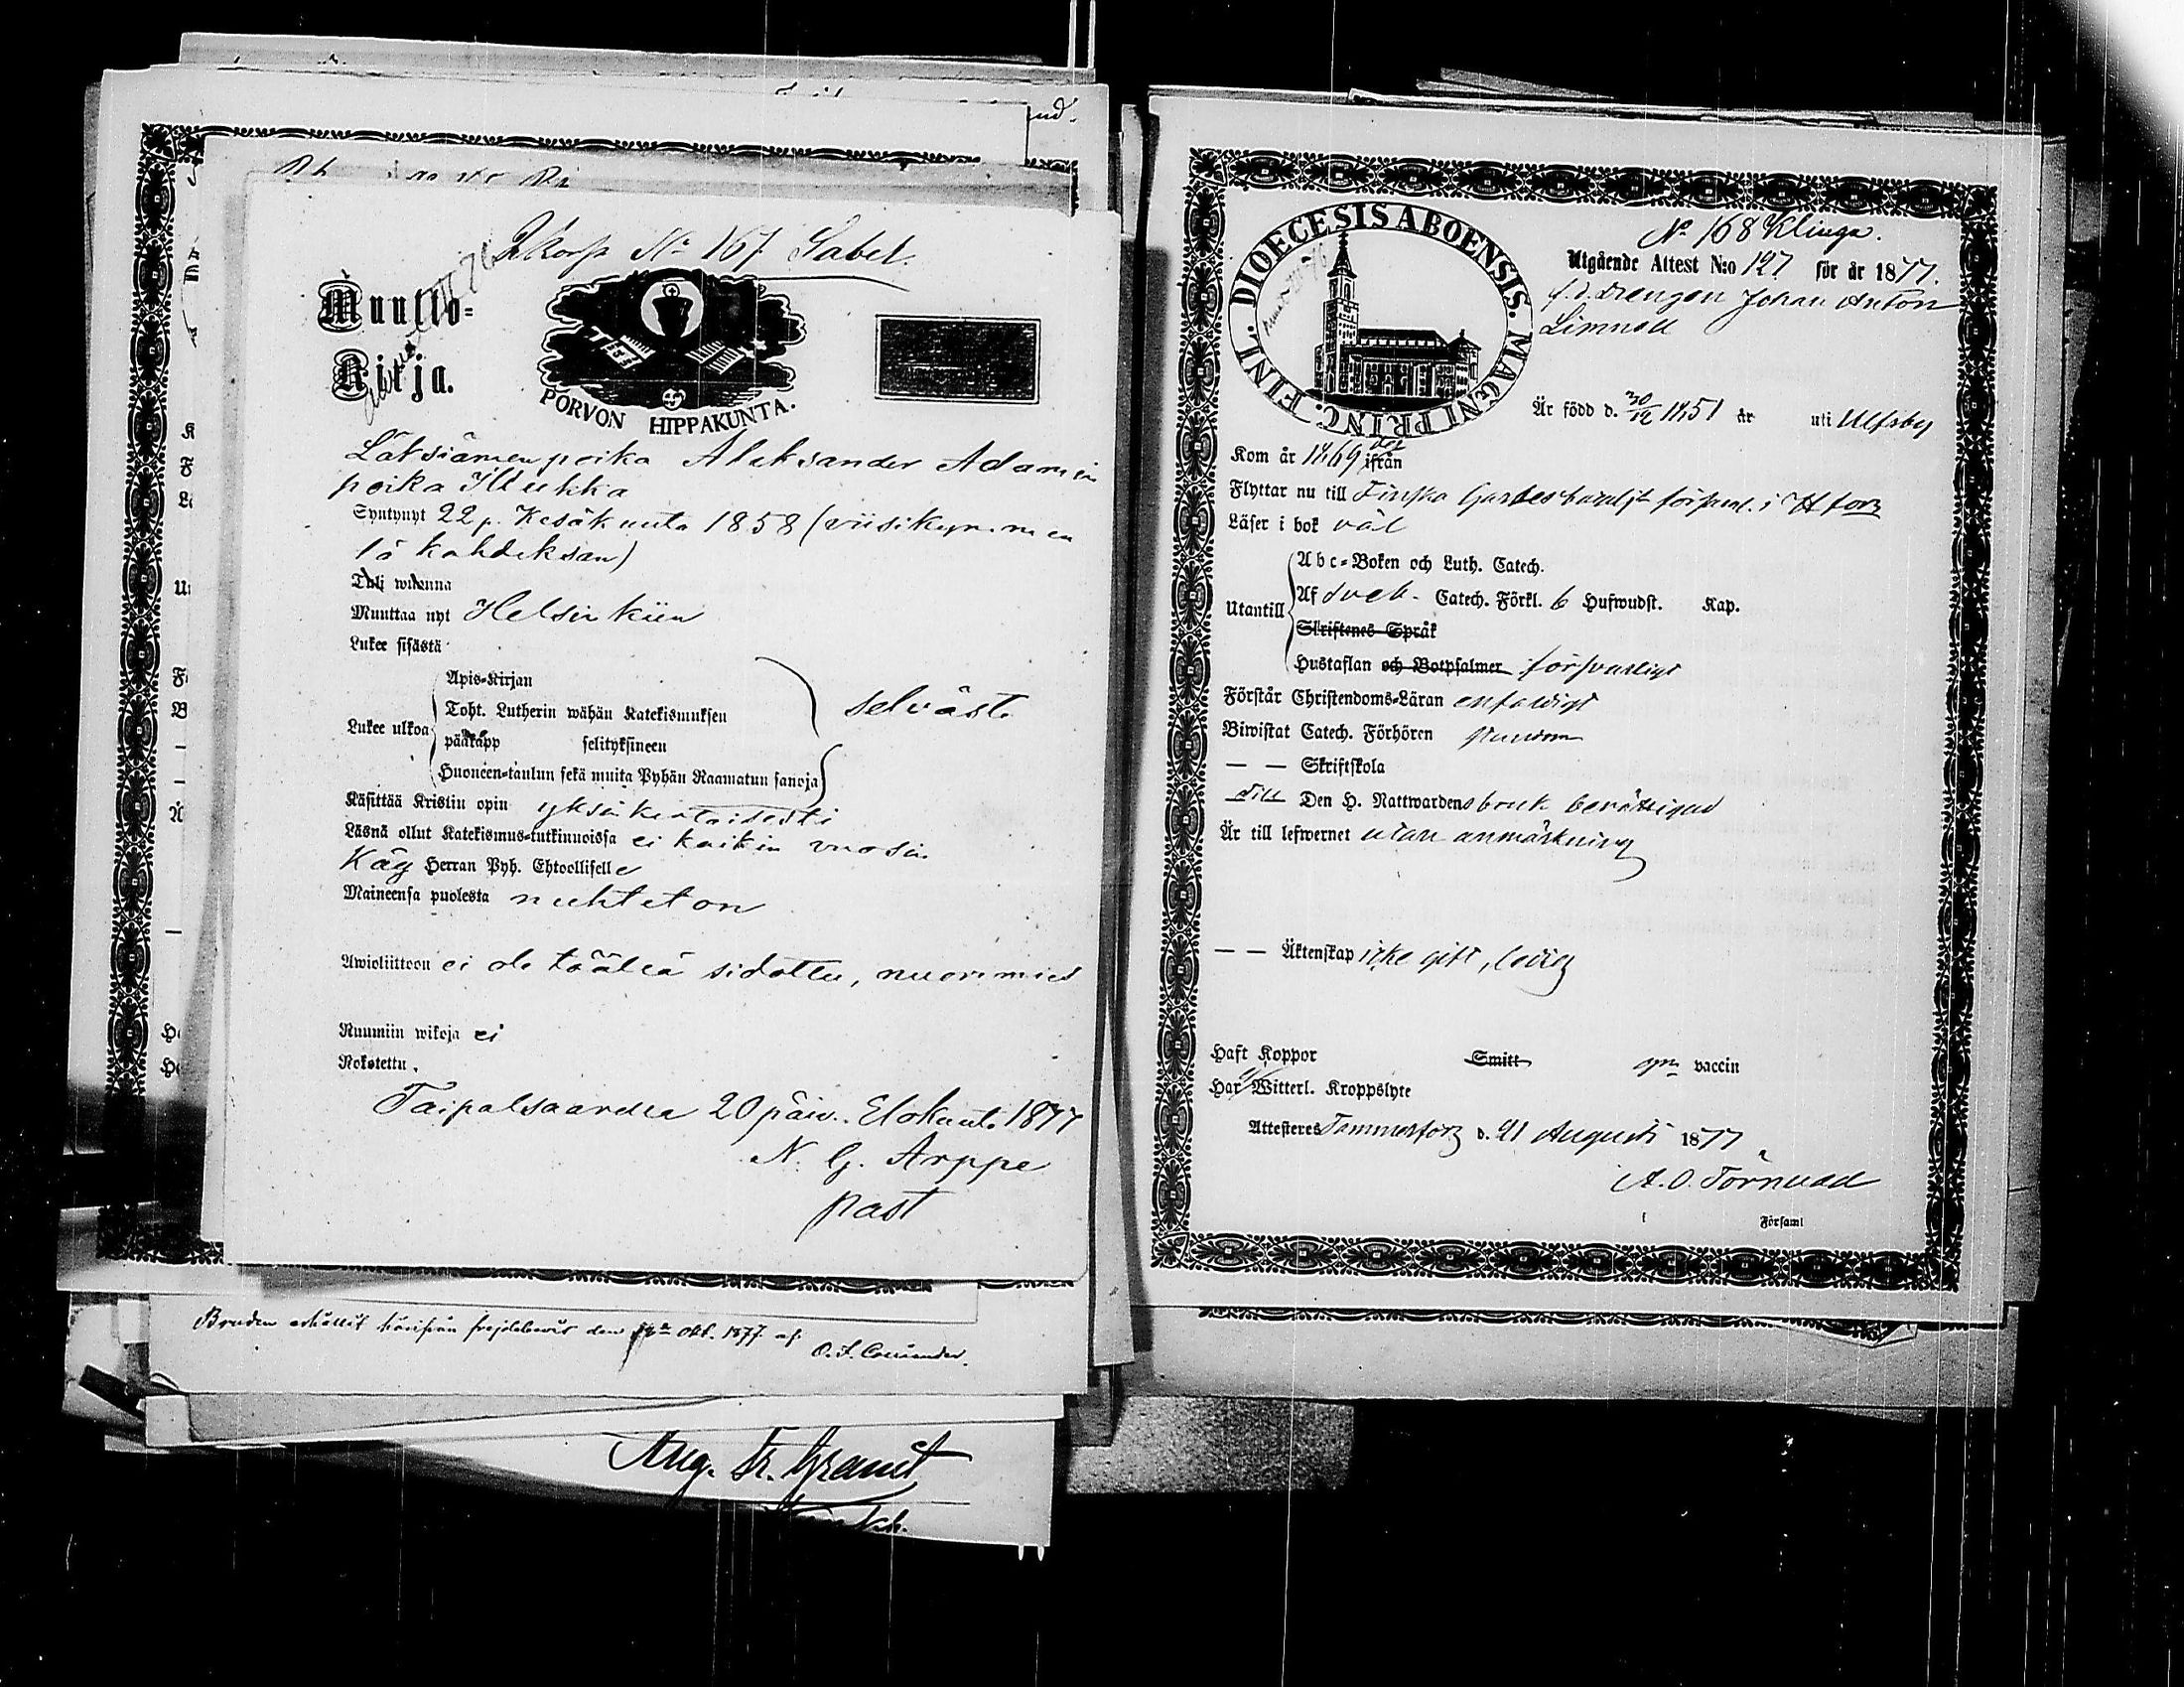 Muutto-
Kirja.
No 167. Sabel.
PORVON HIPPAKUNTA.
Aleksander Adamin
poika Ilukka
Syntynyt 22 p. Kesäkuuta 1858 (viisikymmen
tä kahdeksan)
Tuli
Muuttaa nyt Helsinkiin
Lukee sisästä
Lukee ulkoa
Apis-Kirjan
Toht. Lutherin wähän Katekismuksen
pääkapp selityksineen
Huoneen-taulun sekä muita Pyhän Raamatun sanoja
selvästi
Käsittää Kristin opin yksinkertaisesti
Läsnä ollut Katekismus-tutkinnoissa ei kaikin vuosin
Käy Herran Pyh. Ehtoollisella
Maineensa puolesta nuhteton
Awioliittoon ei ole täällä sidottu, nuorimies
Ruumiin wikoja ei
Rokotettu.
Taipalsaarella 20 päiv. Elokuuta 1877
N. G. Arppe
past
Bruden erhållit härifrån frejdebevis den Okt. 1877 af
Aug. Fr. Granit
DIOECESIS ABOENSIS. MAGNI PRINC. FINL.
No 168 Klinga.
Utgående Attest N:o 127 för år 1877.
f. d. Drengen Johan Anton
Limnell
Är född d. 30/12 1851 år uti Ulfsby
Kom år 1869 ifrån
Flyttar nu till Finska Gardesbataljs församl. i H:fors
Läser i bok väl
Utantill
Abc-Boken och Luth. Catech.
Af Sveb. Catech. Förkl. 6 Hufwudst. Kap.
Skriftenes Språk
Hustaflan och Botpsalmer försvarligt
Förstår Christendoms-Läran enfaldigt
Biwistat Catech. Förhören stundom
— — Skriftskola
till Den H. Nattwardens bruk berättigad
Är till lefwernet utan anmärkning
— — Äktenskap icke gift, ledig
Haft Koppor Smitt gm vaccin
Har Witterl. Kroppslyte
Attesteras Tammerfors d. 21 Augusti 1877
A. O. Törnudd
Församl